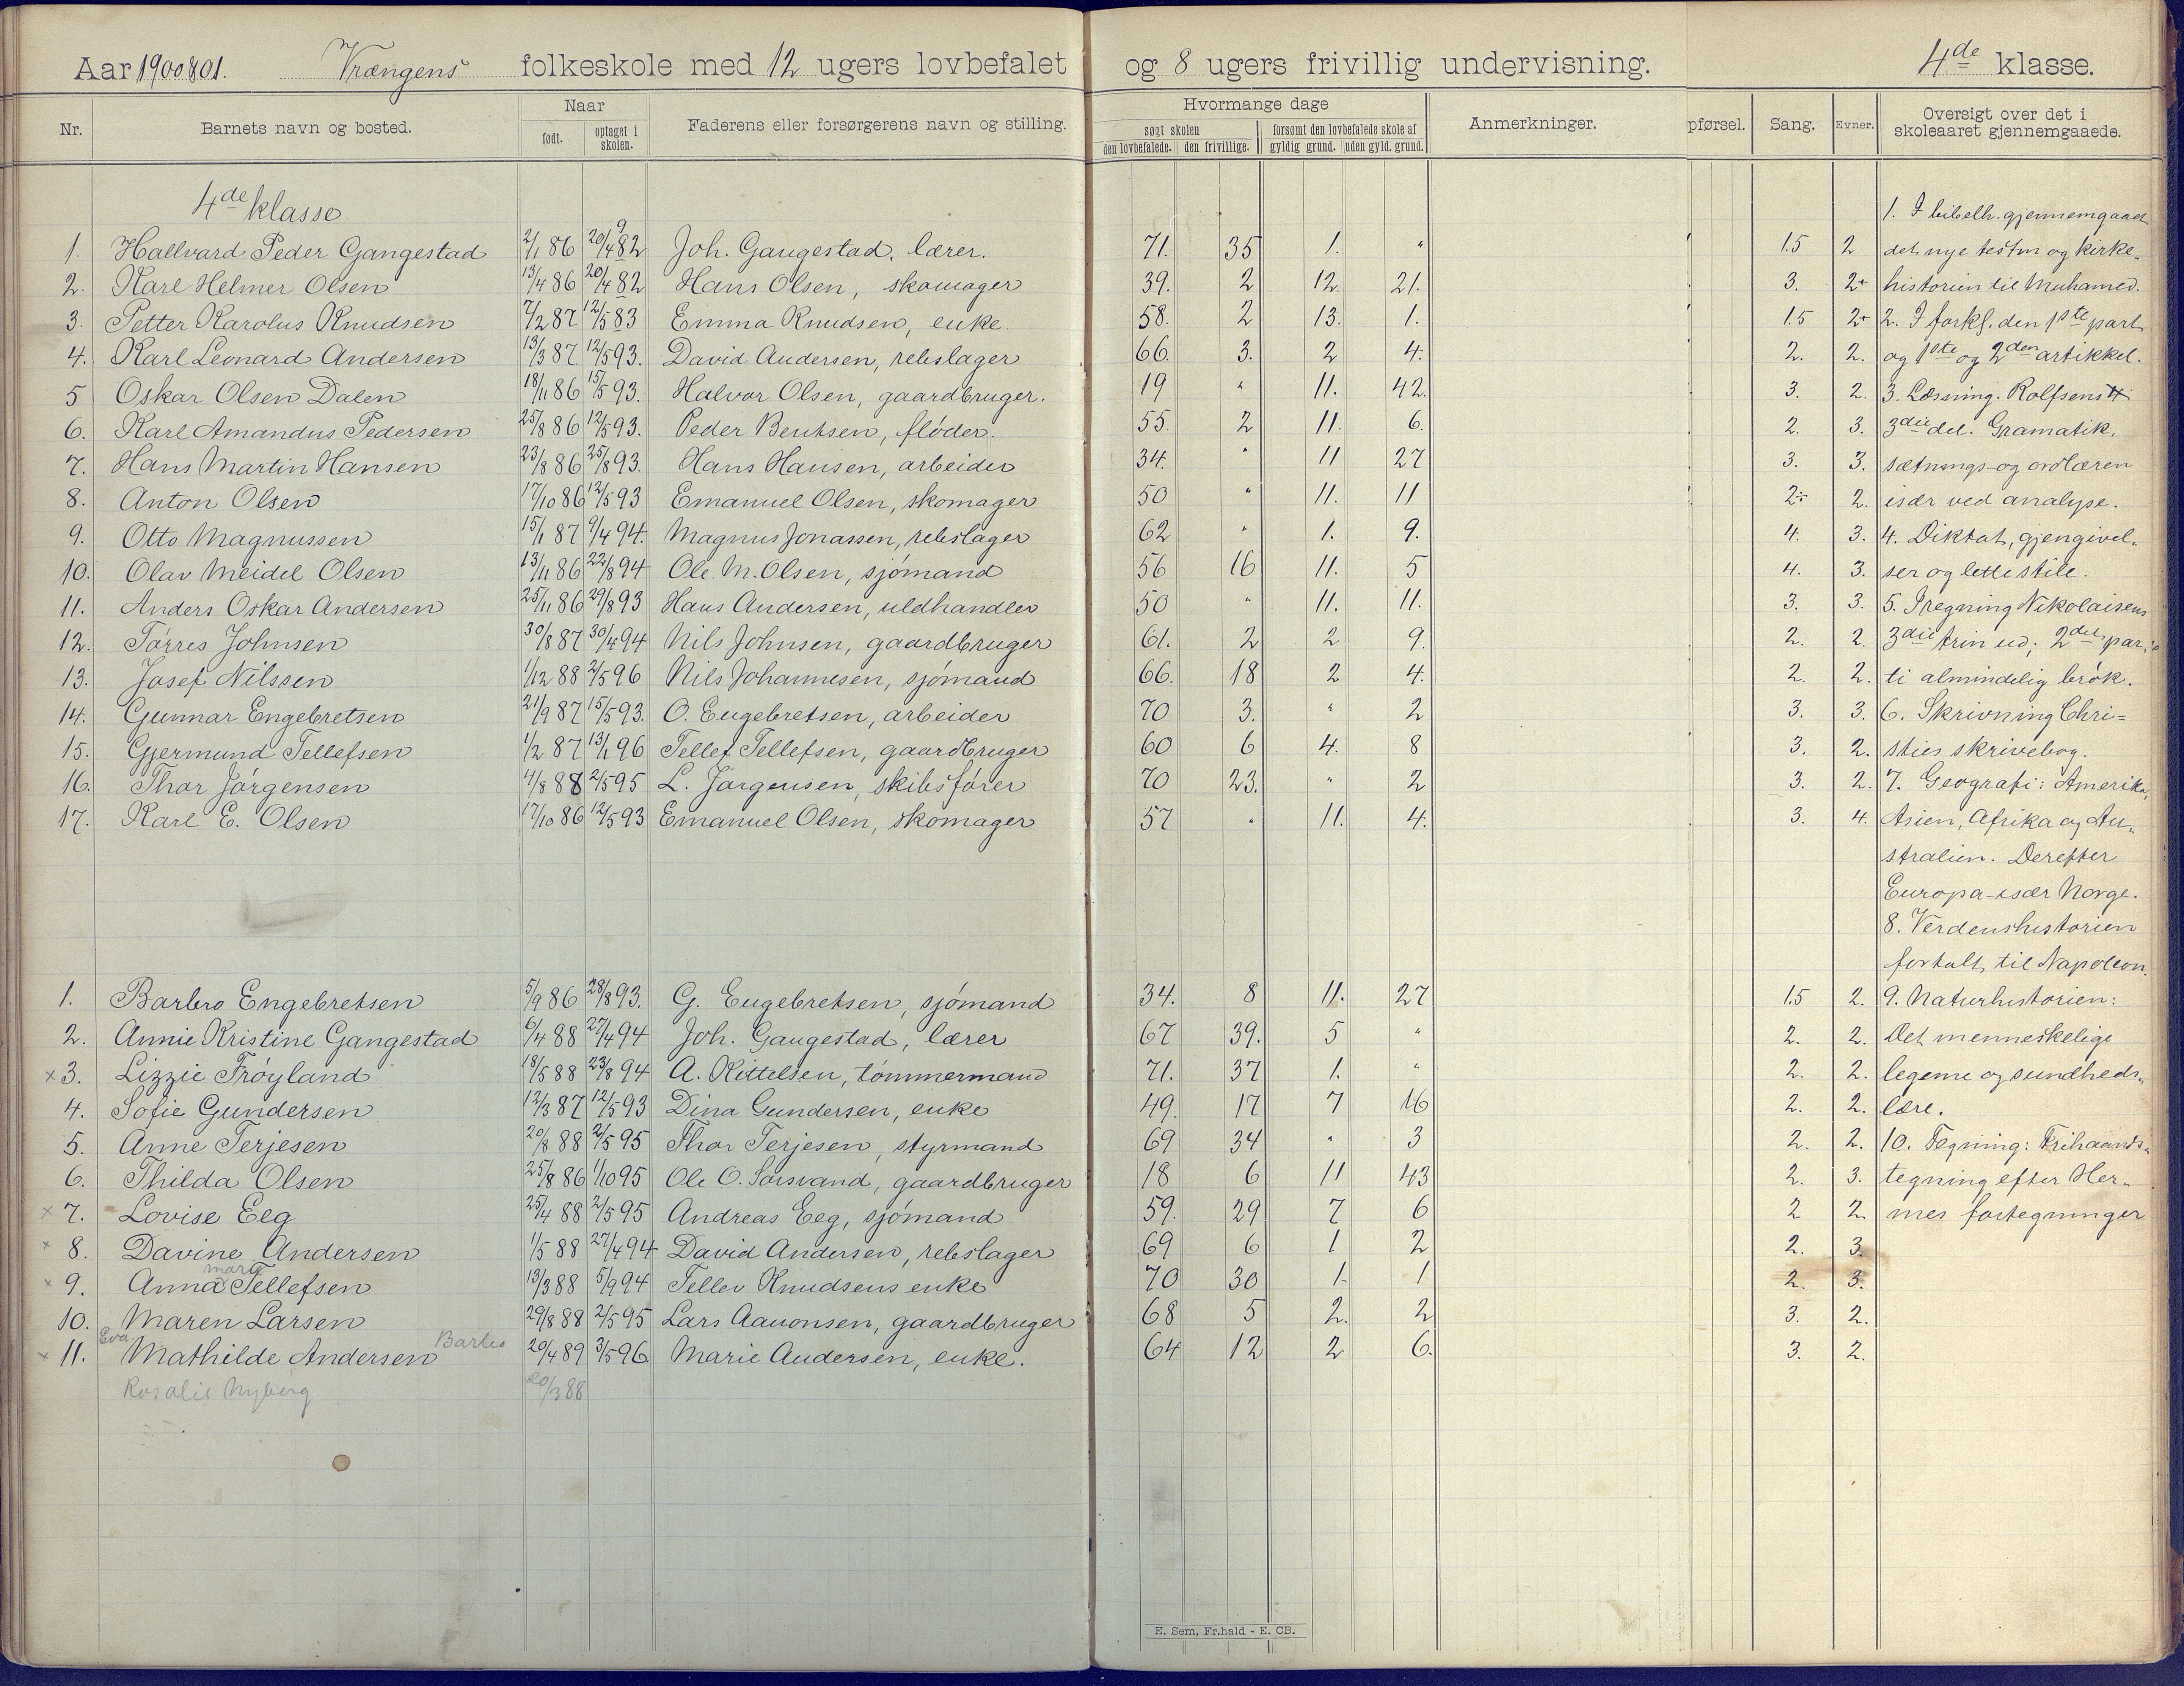 Aar 1900 & 01. Vrængens folkeskole med 12 ugers lovbefalet og 8 ugers frivillig undervisning. 4de klasse.
Nr. Barnets navn og bosted. Naar født. optaget i skolen. Faderens eller forsørgerens navn og stilling. Hvormange dage søgt skolen den lovbefalede. den frivillige. forsømt den lovbefalede skole af gyldig grund. uden gyld. grund. Anmerkninger. pførsel. Sang. Evner. Oversigt over det i skoleaaret gjennemgaaede.
4de klasse 1. I bibelh. gjennemgaaet
1. Hallvard Peder Gangestad 2/1 86 20/4 9 82 Joh. Gangestad, lærer. 71. 35 1. " 1.5 2 det nye testm og kirke-
2. Karl Helmer Olsen 13/4 86 20/4 82 Hans Olsen, skomager 39. 2 12. 21. 3. 2+ historien til Muhamed.
3. Petter Karolus Knudsen 7/2 87 12/5 83 Emma Knudsen, enke. 58. 2 13. 1. 1.5 2+ 2. I forkl. den 1ste part
4. Karl Leonard Andersen 13/3 87 12/5 93. David Andersen, rebslager 66. 3. 2 4. 2. 2. og 1ste og 2den artikkel.
5 Oskar Olsen Dalen 18/11 86 15/5 93. Halvor Olsen, gaardbruger. 19 " 11. 42. 3. 2. 3. Læsning. Rolfsens
6. Karl Amandus Pedersen 25/8 86 12/5 93. Peder Bentsen, fløder. 55. 2 11. 6. 2. 3. 3die del. Gramatik,
7. Hans Martin Hansen 23/8 86 25/8 93. Hans Hansen, arbeider 34. " 11 27 3. 3. sætnings- og ordlæren
8. Anton Olsen 17/10 86 12/5 93 Emanuel Olsen, skomager 50 " 11. 11 2÷ 2. især ved analyse.
9. Otto Magnussen 15/1 87 9/4 94. Magnus Jonassen, rebslager 62 " 1. 9. 4. 3. 4. Diktat, gjengivel-
10. Olav Meidel Olsen 13/11 86 22/8 94 Ole M. Olsen, sjømand 56 16 11. 5 4. 3. ser og lette stile.
11. Anders Oskar Andersen 25/11 86 29/8 93 Hans Andersen, uldhandler 50 " 11. 11. 3. 3. 5. I regning Nikolaisens
12. Tørres Johnsen 30/8 87 30/4 94 Nils Johnsen, gaardbruger 61. 2 2 9. 2. 2. 3die trin ud; 2det par-
13. Josef Nilssen 1/12 88 2/5 96 Nils Johannesen, sjømand 66. 18 2 4. 2. 2. ti almindelig brøk.
14. Gunnar Engebretsen 21/9 87 15/5 93. O. Engebretsen, arbeider 70 3. " 2 3. 3. 6. Skrivning Chri=
15. Gjermund Tellefsen 1/2 87 13/1 96 Tellef Tellefsen, gaardbruger 60 6 4. 8 3. 2. sties skrivebog.
16. Thor Jørgensen 4/8 88 2/5 95 L. Jørgensen, skibsfører 70 23. " 2 3. 2. 7. Geografi: Amerika,
17. Karl E. Olsen 17/10 86 12/5 93 Emanuel Olsen, skomager 57 " 11. 4. 3. 4. Asien, Afrika og Au-
stralien. Derefter
Europa - især Norge.
8. Verdenshistorien
fortalt til Napoleon.
1. Barbro Engebretsen 5/9 86 28/8 93. G. Engebretsen, sjømand 34. 8 11. 27 1.5 2. 9. Naturhistorien:
2. Annie Kristine Gangestad 6/4 88 27/4 94 Joh. Gangestad, lærer 67 39. 5 " 2. 2. Det menneskelige
x 3. Lizzie Frøyland 18/5 88 23/8 94 A. Kittelsen, tømmermand 71. 37 1. " 2. 2. legeme og sundheds-
4. Sofie Gundersen 12/3 87 12/5 93 Dina Gundersen, enke 49. 17 7 16 2. 2. lære.
5. Anne Terjesen 20/8 88 2/5 95 Thor Terjesen, styrmand 69 34 " 3 2. 2. 10. Tegning: Frihaands-
6. Thilda Olsen 25/8 86 1/10 95 Ole O. Sørsvand, gaardbruger 18 6 11 43 2. 3. tegning efter Her-
x 7. Lovise Eeg 25/4 88 2/5 95 Andreas Eeg, sjømand 59. 29 7 6 2 2. mes fortegninger
x 8. Davine Andersen 1/5 88 27/4 94 David Andersen, rebslager 69 6 1 2 2. 3.
x 9. Anna Marie Tellefsen 13/3 88 5/9 94 Tellev Knudsens enke 70 30 1. 1 2. 3.
10. Maren Larsen 29/8 88 2/5 95 Lars Aavonsen, gaardbruger 68 5 2. 2 3. 2.
x 11. Eva Mathilde Andersen Barbro 20/4 89 3/5 96 Marie Andersen, enke. 64 12 2 6. 3. 2.
Rosalie Nyberg 20/3 88
E. Sem, Fr.hald - E. CB.